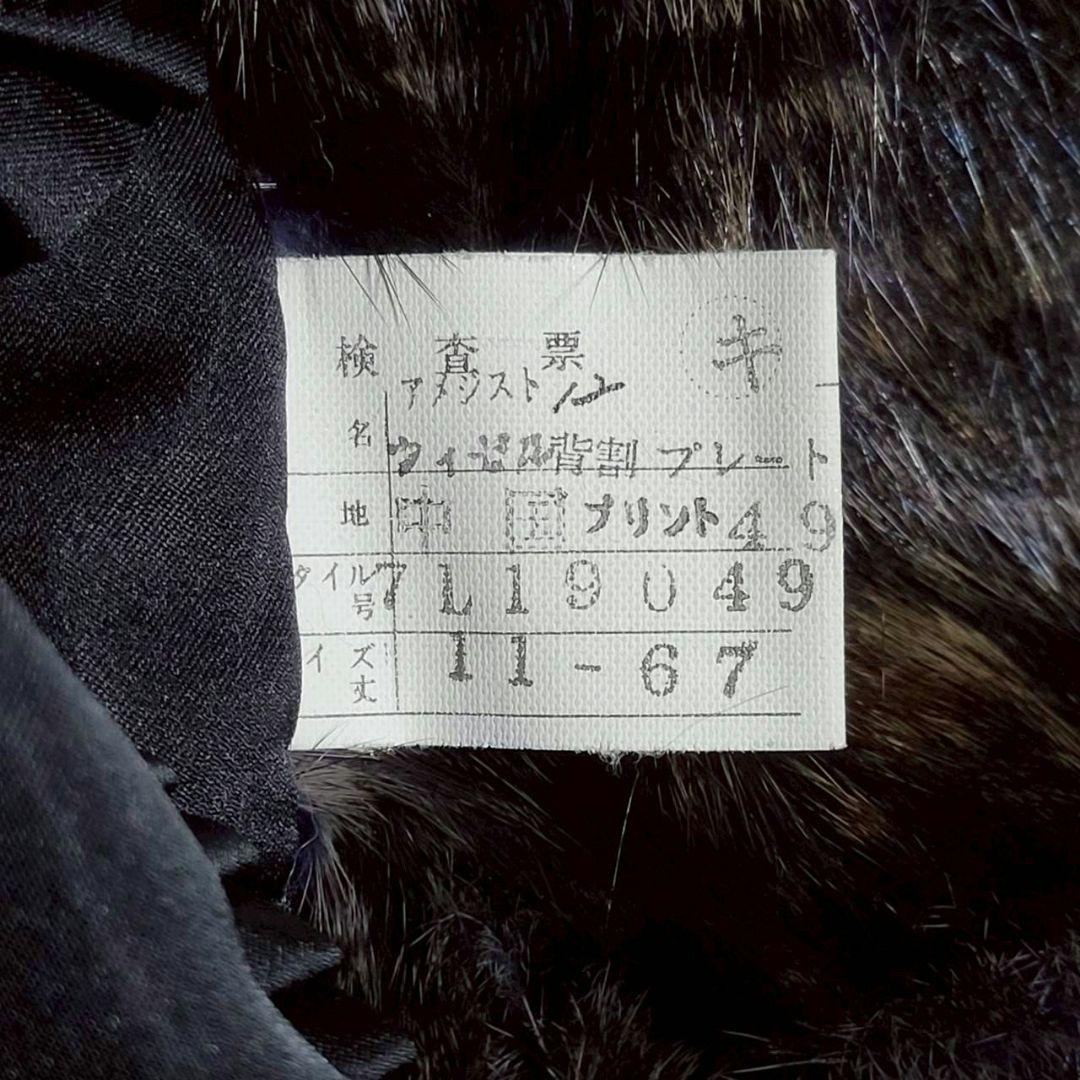 検査票 キ
アメジスト
名 ウィゼル背割プレート
地 中国プリント49
タイル 7L19049
号
イズ 11-67
丈